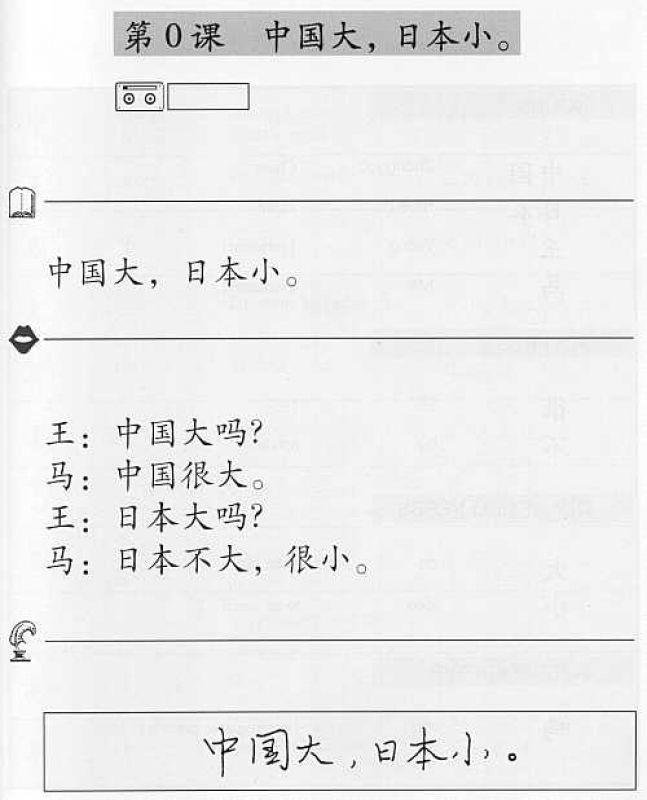 第0课 中国大，日本小。
中国大，日本小。
王：中国大吗？
马：中国很大。
王：日本大吗？
马：日本不大，很小。
中国大，日本小。